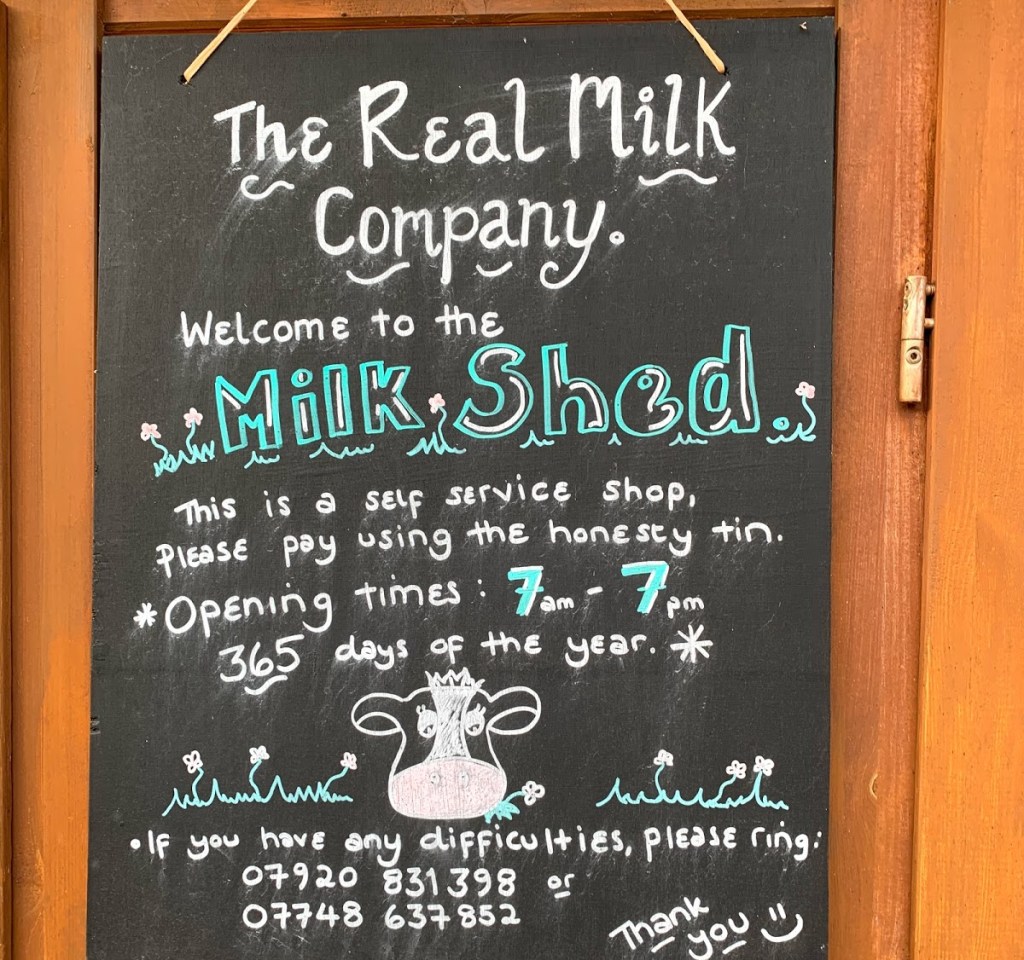 The Real Milk
Company.
Welcome to the
Milk Shed.
This is a self service shop,
Please pay using the honesty tin.
*Opening times: 7am - 7pm
365 days of the year. *
•If you have any difficulties, please ring:
07920 831398 or
07748 637852
Thank
you :)